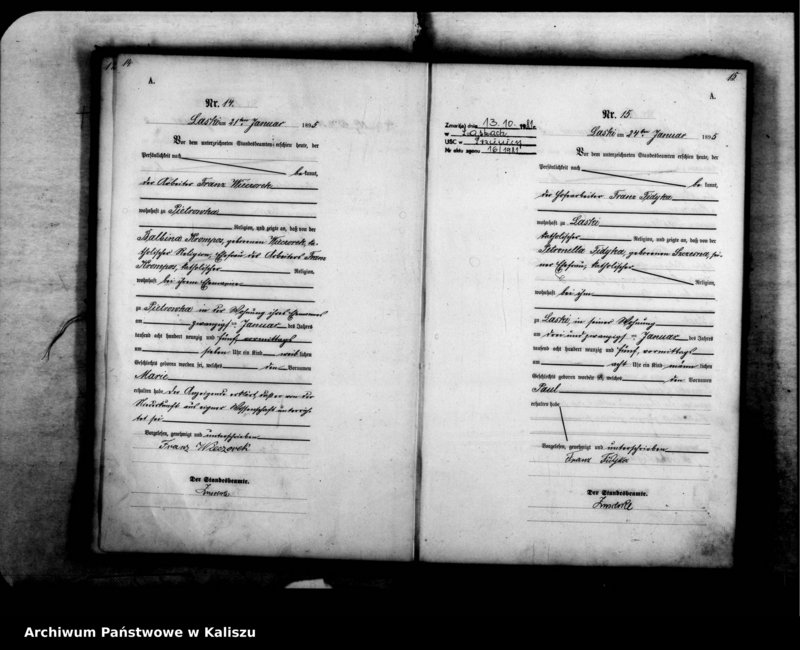 14
A.
Nr. 14.
Laski am 21ten Januar 1895
Vor dem unterzeichneten Standesbeamten erschien heute, der
Persönlichkeit nach
be kannt,
der Arbeiter Franz Wieczorek
wohnhaft zu Pietrowka
Religion, und zeigte an, daß von der
Balbina Krompos, geborenen Wieczorek, ka-
tholischer Religion, Ehefrau des Arbeiters Franz
Krompos, katholischer Religion,
wohnhaft bei ihrem Ehemanne
zu Pietrowka in der Wohnung ihres Ehemannes
am zwanzigsten Januar des Jahres
tausend acht hundert neunzig und fünf vormittags
um sieben Uhr ein Kind weiblichen
Geschlechts geboren worden sei, welches den Vornamen
Marie
erhalten habe. Der Anzeigende erklärt, daß er von der
Niederkunft aus eigner Wissenschaft unterrich-
tet sei.
Vorgelesen, genehmigt und unterschrieben
Franz Wieczorek
Der Standesbeamte.
15
A.
Zmarł(a) dnia 13.10.1981r.
w
USC w
Nr aktu zgonu 16/1981
Nr. 15.
Laski am 24ten Januar 1895
Vor dem unterzeichneten Standesbeamten erschien heute, der
Persönlichkeit nach
be kannt,
der Hofearbeiter Franz Fidyka
wohnhaft zu Laski
katholischer Religion, und zeigte an, daß von der
Petronella Fidyka, geborenen Szczesna, sei-
ner Ehefrau, katholischer
Religion,
wohnhaft bei ihm
zu Laski, in seiner Wohnung
am drei und zwanzigsten Januar des Jahres
tausend acht hundert neunzig und fünf, vormittags
um acht Uhr ein Kind männlichen
Geschlechts geboren worden sei, welches den Vornamen
Paul
erhalten habe
Vorgelesen, genehmigt und unterschrieben
Franz Fidyka
Der Standesbeamte.
Archiwum Państwowe w Kaliszu